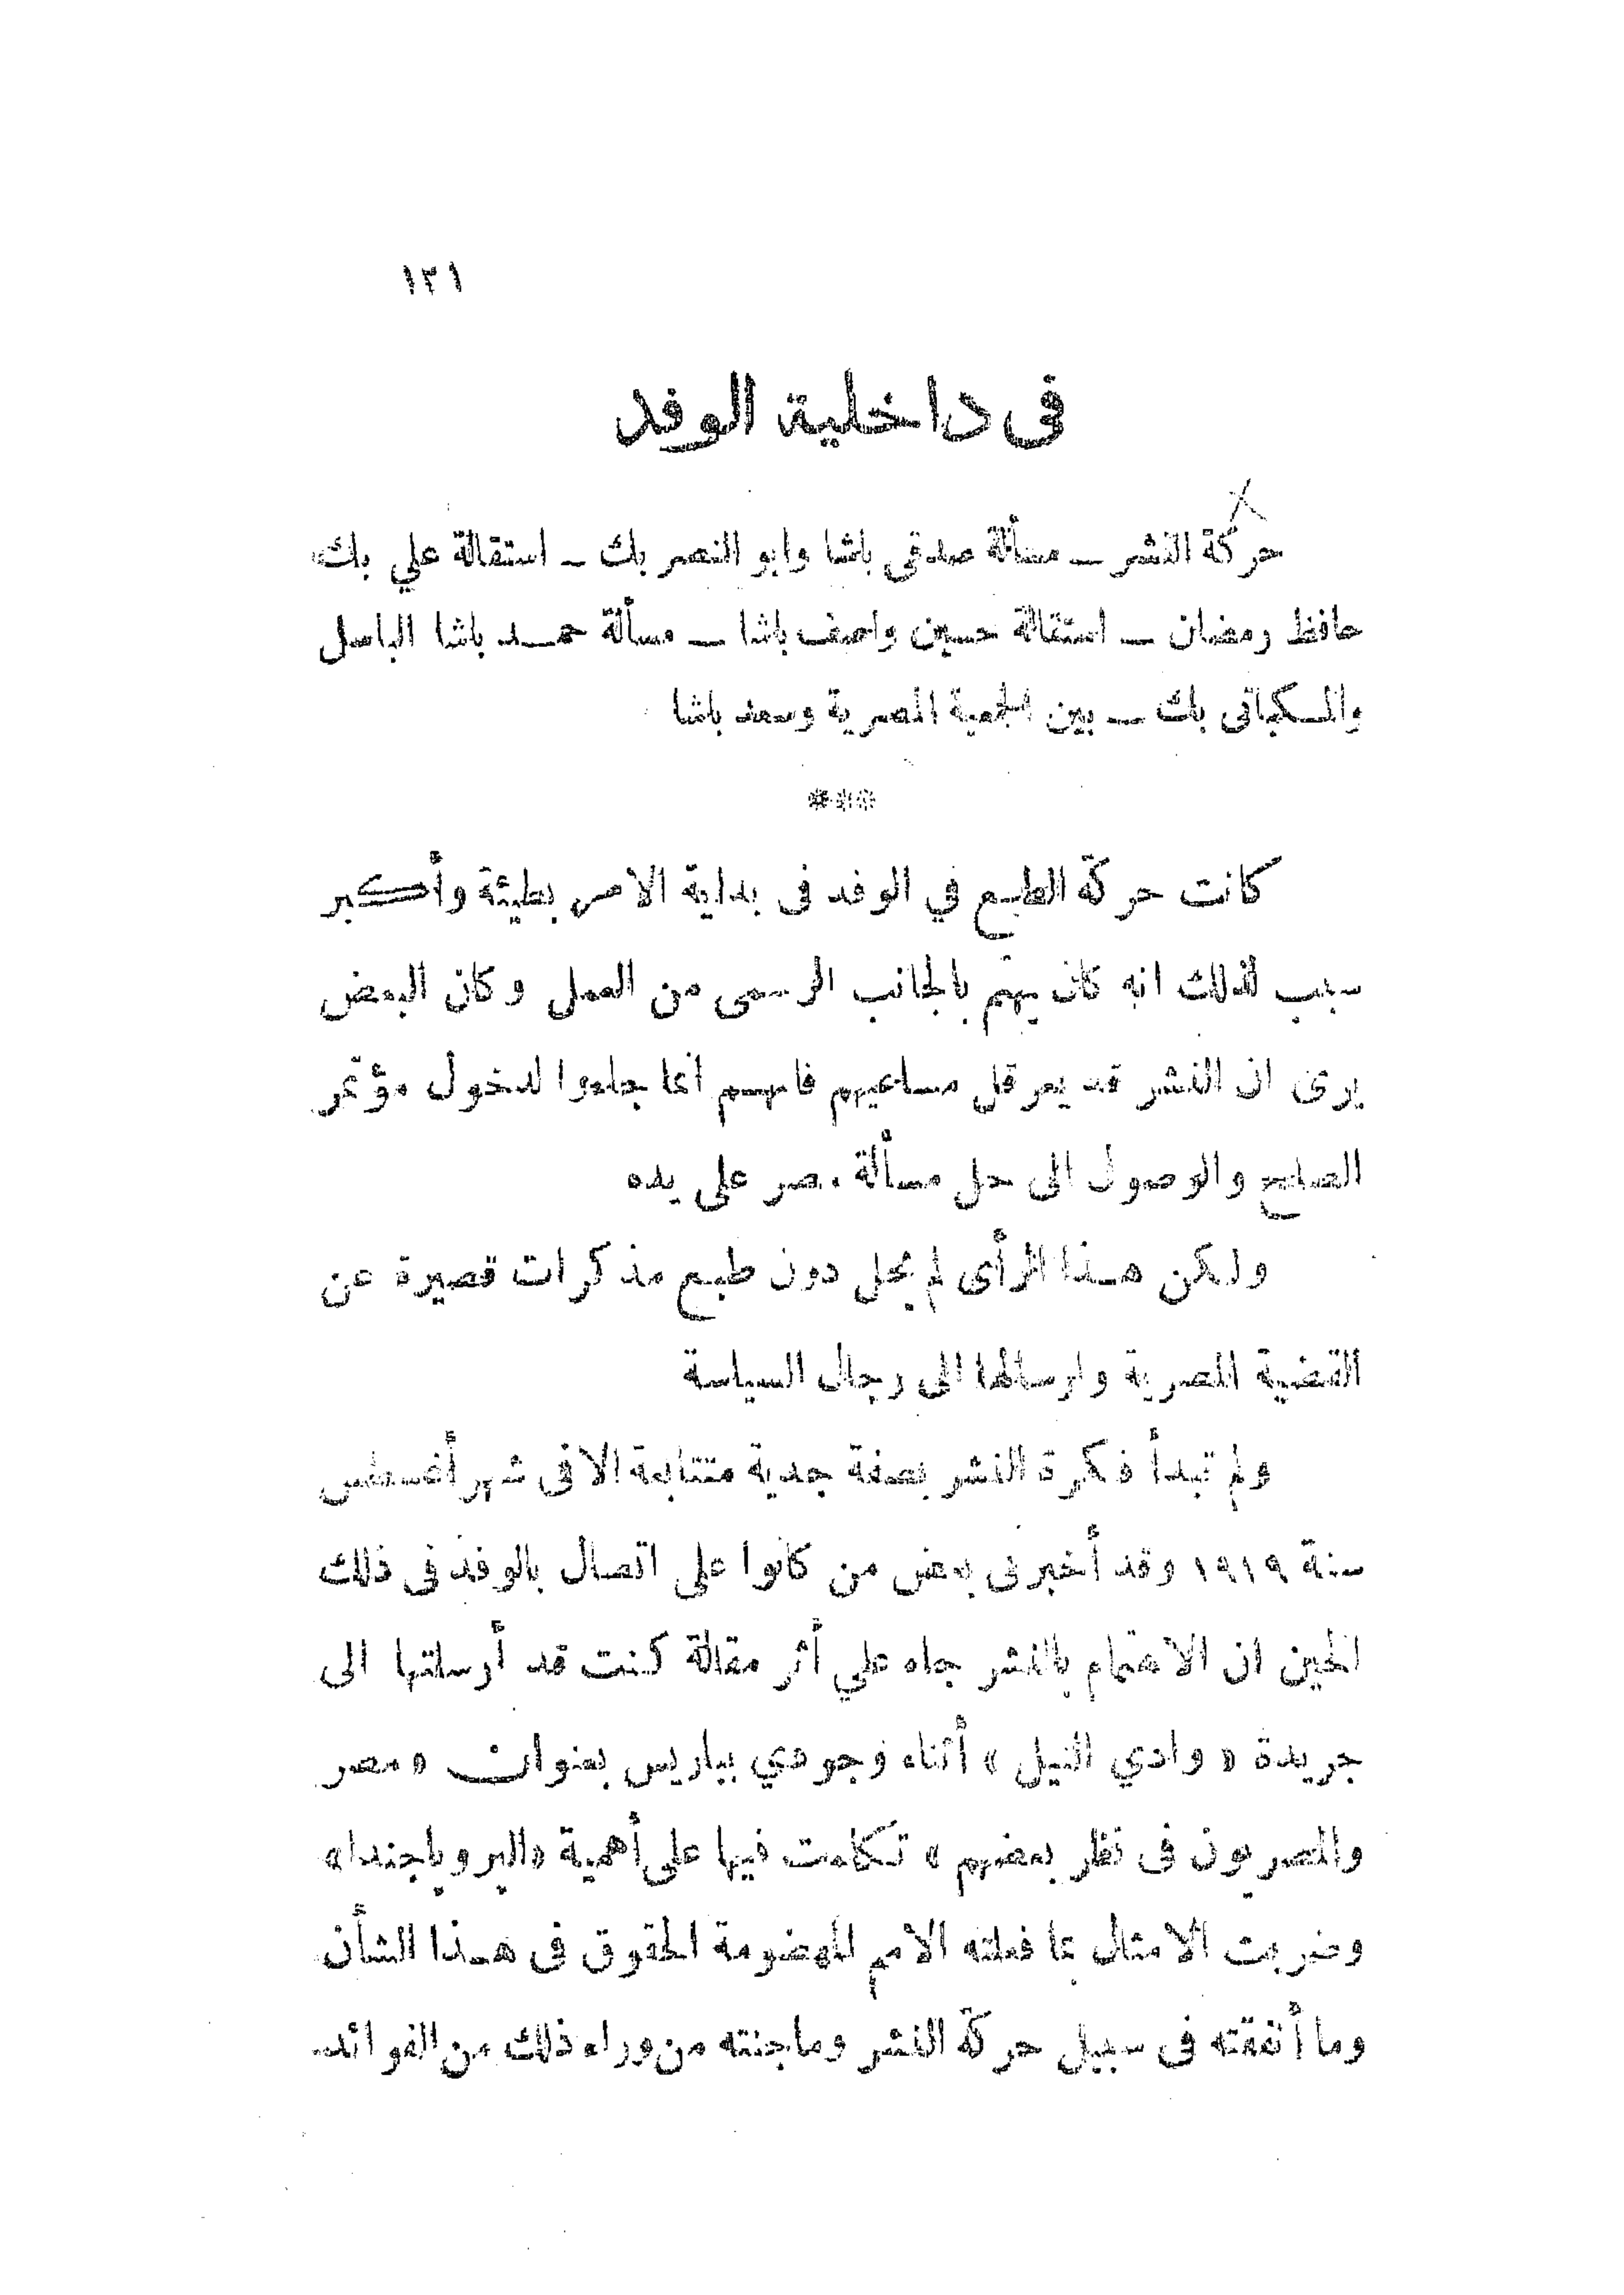 ١٢١
فى داخلية الوفد
حركة النشر ــ مسألة صدقى باشا وابو النصر بك ــ استقالة علي بك
حافظ رمضان ــ استقالة حسين واصف باشا ــ مسألة حمد باشا الباسل
والمكباتى بك ــ بين الجمعية المصرية وسعد باشا
***
كانت حركة الطبع في الوفد فى بداية الامر بطيئة وأكبر
سبب لذلك انه كان يهتم بالجانب الرسمى من العمل وكان البعض
يرى ان النشر قد يعرقل مساعيهم فانهم انما جاءوا لدخول مؤتمر
الصلح والوصول الى حل مسألة مصر على يده
ولكن هذا الرأى لم يحل دون طبع مذكرات قصيرة عن
القضية المصرية وارسالها الى رجال السياسة
ولم تبدأ فكرة النشر بصفة جدية متتابعة الا فى شهر أغسطس
سنة ١٩١٩ وقد أخبرنى بعض من كانوا على اتصال بالوفد فى ذلك
الحين ان الاهتمام بالنشر جاء علي أثر مقالة كنت قد أرسلتها الى
جريدة « وادي النيل » أثناء وجودي بباريس بعنوان « مصر
والمصريون فى نظر بعضهم » تكلمت فيها على أهمية «البروباجندا»
وضربت الامثال بما فعلته الامم المهضومة الحقوق فى هذا الشأن
وما أنفقته فى سبيل حركة النشر وما جنته من وراء ذلك من الفوائد